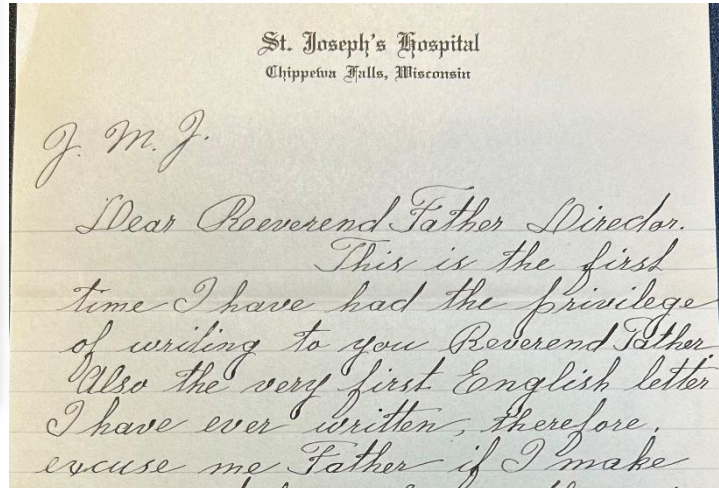 St. Joseph's Hospital
Chippewa Falls, Wisconsin
J. M. J.
Dear Reeverend Father Director.
This is the first
time I have had the privilege
of writing to you Reverend Father
Also the very first English letter
I have ever written, therefore.
excuse me Father if I make